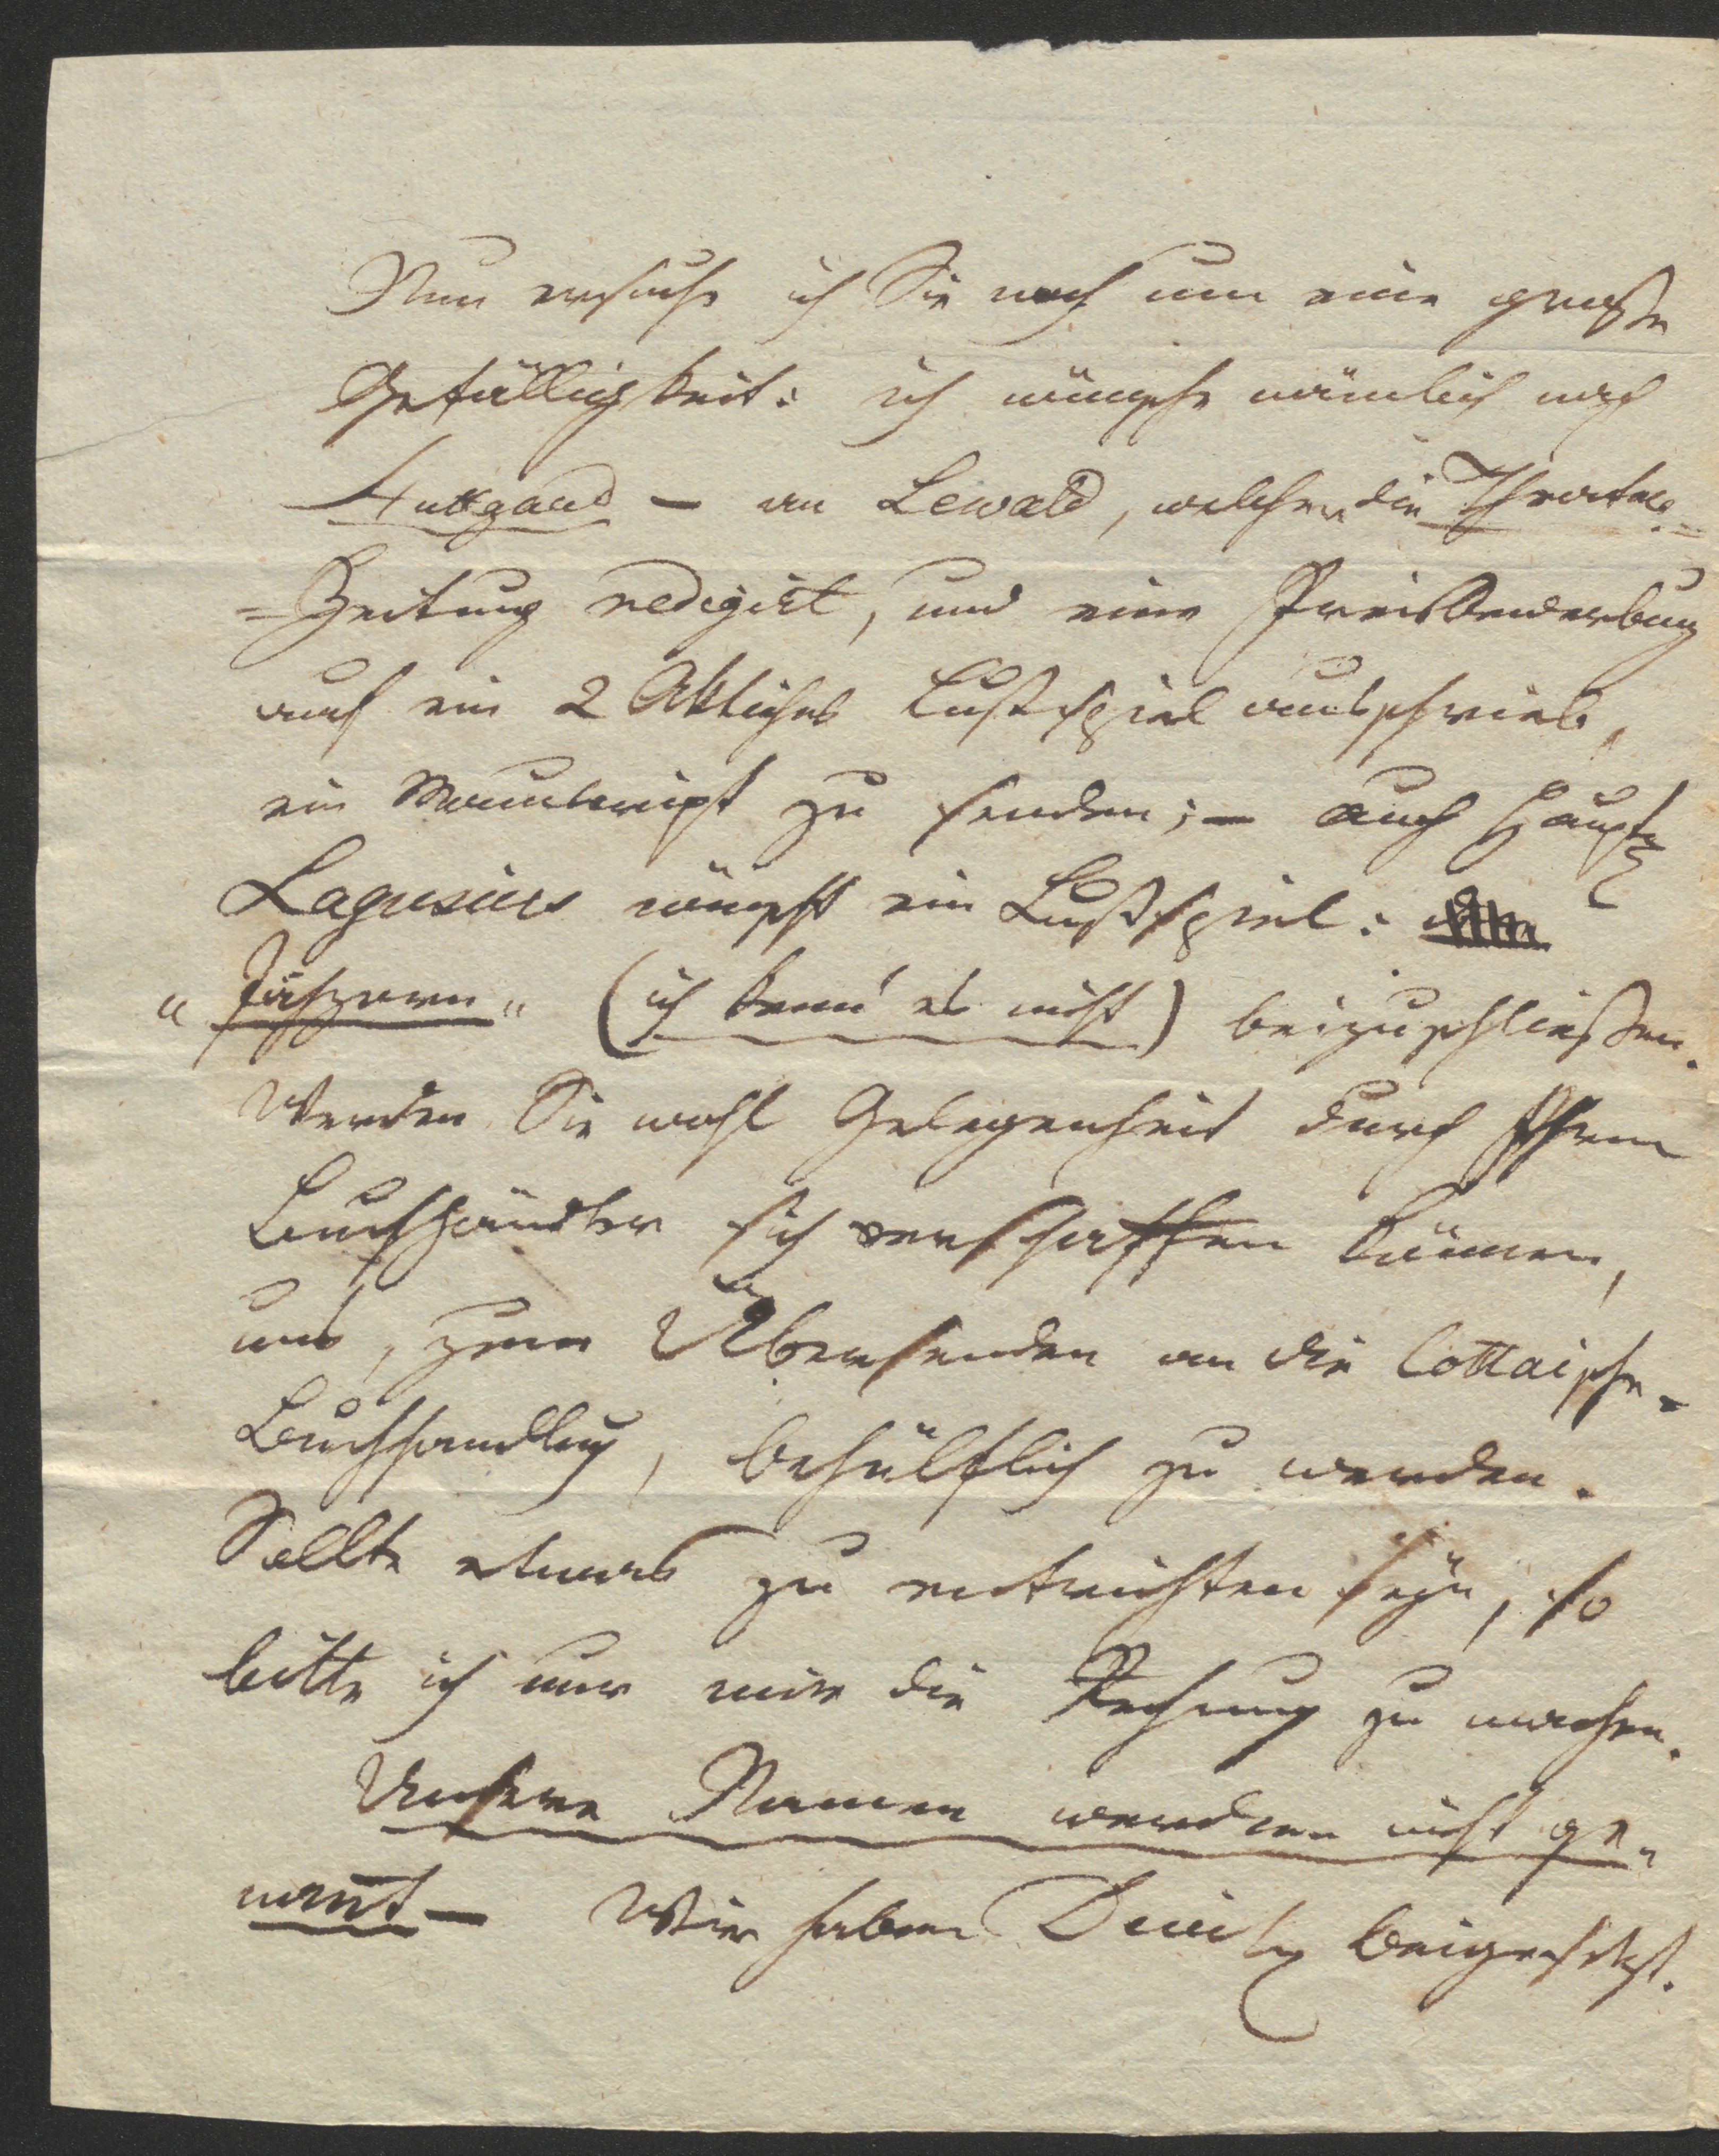 Nun ersuche ich Sie noch um eine große
Gefälligkeit: ich wünsche nämlich nach
Stuttgard – an Lewald, welcher die Theater=
=Zeitung redigirt, und eine
auf ein 2 Aktiches Lustspiel ausschrieb,
ein Manuscript zu senden; – auch Haupt
Lagusius wünscht ein Lustspiel:
(ich kenn' es nicht) beizuschließen.
Werden Sie wohl Gelegenheit durch Ihren
Buchhändler sich verschaffen können,
uns, zum Übersenden an die Cottaische=
Buchhandlug, behülflich zu werden.
Sollte etwas zu entrichten seÿn, so
bitte ich nur mir die Rechnung zu machen.
Unsere Namen werden nicht ge=
nan̄t – Wir haben beigesetzt.